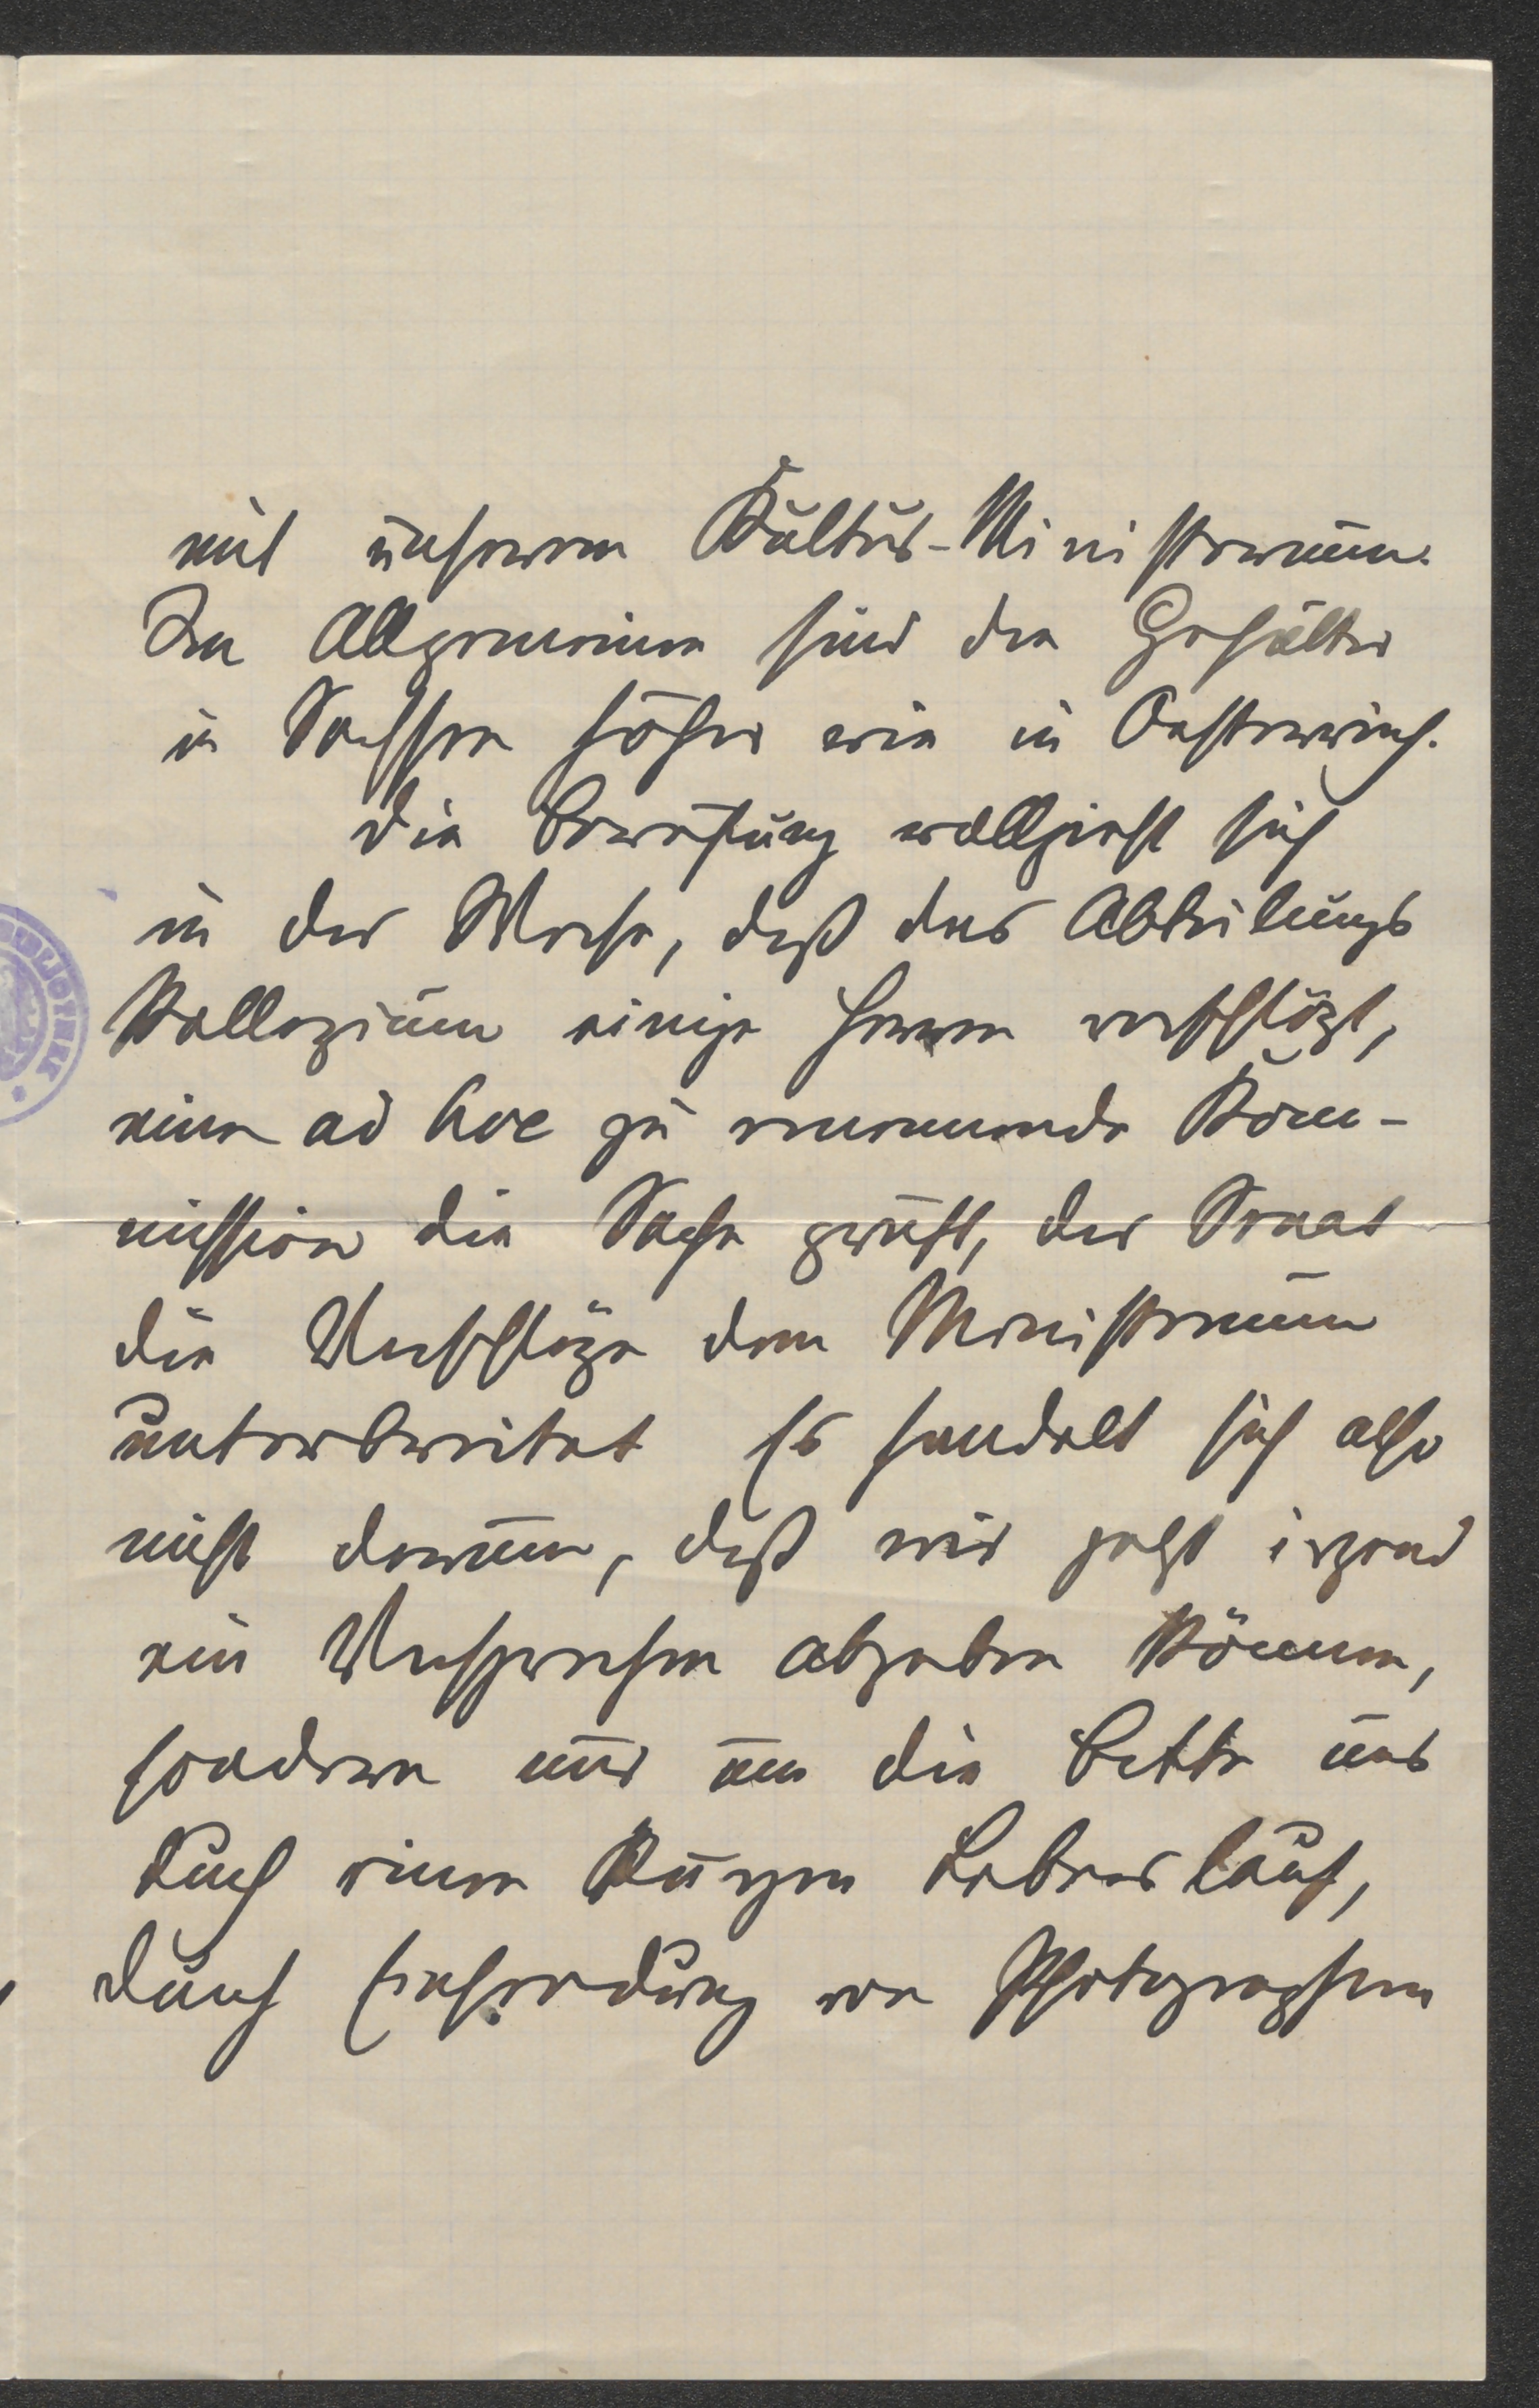 mit unserem Kultus-Ministerium.
Im Allgemeinen sind die Gehälter
in Sachsen höher wie in Oesterreich.
Die Berufung vollzieht sich
in der Weise, daß das Abteilungs
Kollegium einige Herren vorschlägt,
eine ad hoc zu ernennende Kom-
mission die Sache prüft, der Senat
die Vorschläge dem Ministerium
unterbreitet Es handelt sich also
nicht darum, daß wir jetzt irgend
ein Versprechen abgeben können,
sondern nur um die Bitte uns
durch einen kurzen Lebenslauf,
durch Einsendung von Photographien
BIBLIOTHEK